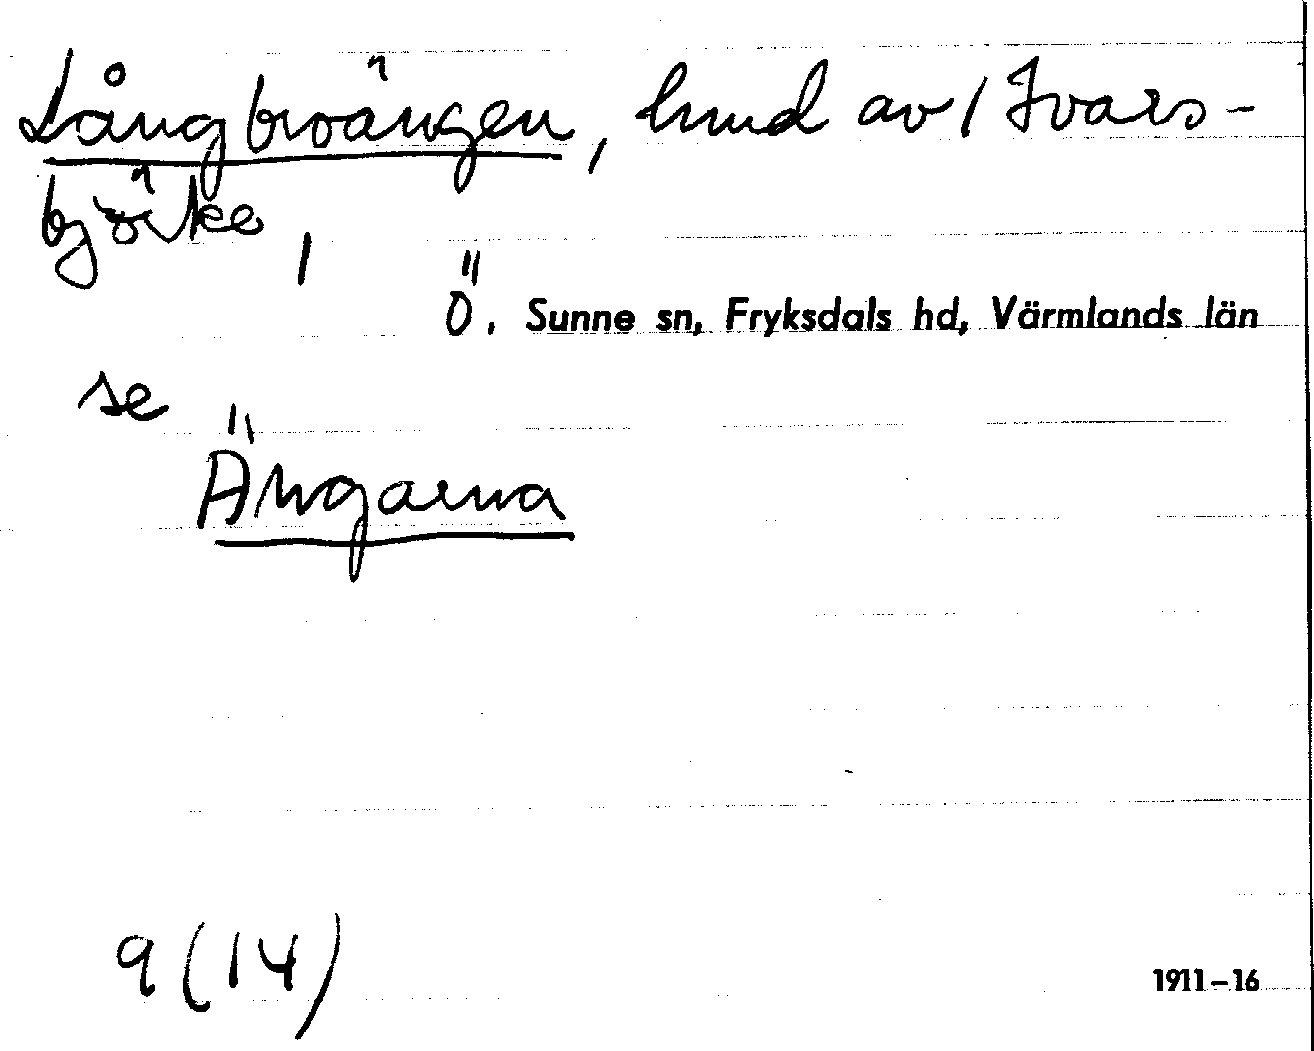 Långbroängen, hmd av 1 Ivars-
björke,
Ö. Sunne sn, Fryksdals hd, Värmlands län
se
Ängarna
9 (14)
1911–16